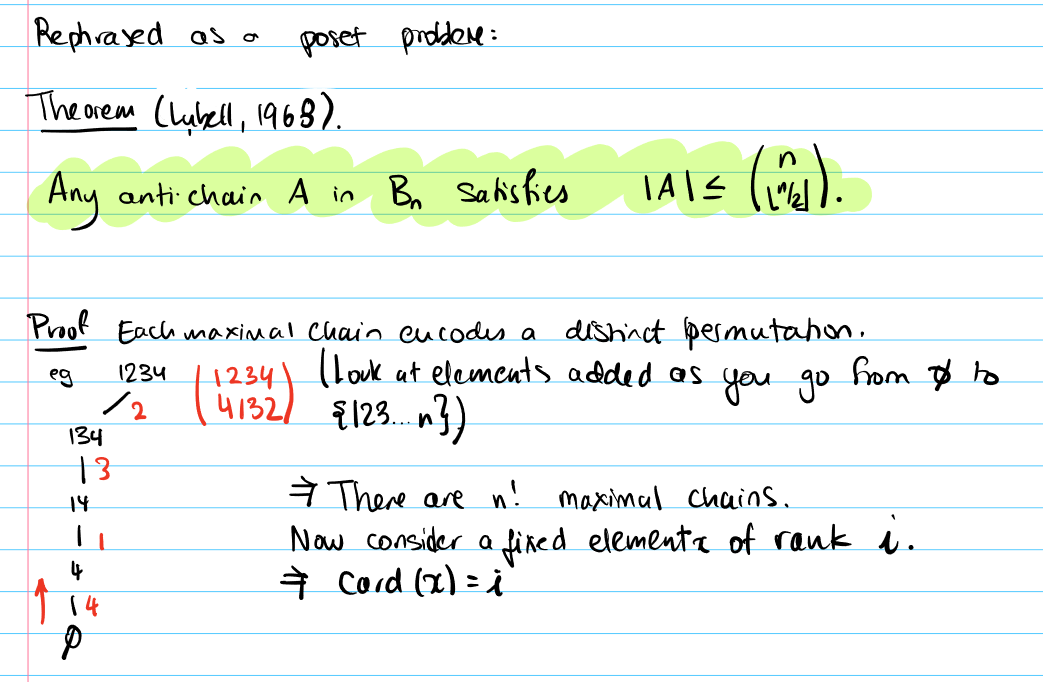 Rephrased as a poset problem:
Theorem (Lubell, 1968).
Any anti-chain A in Bₙ satisfies |A| ≤ (n ⌊n/2⌋).
Proof Each maximal chain encodes a distinct permutation.
eg 1234 (1234 (Look at elements added as you go from ∅ to
2 4132) {123...n})
134
3
14 ⇒ There are n! maximal chains.
1 Now consider a fixed element x of rank i.
4 ⇒ Card (x) = i
4
∅